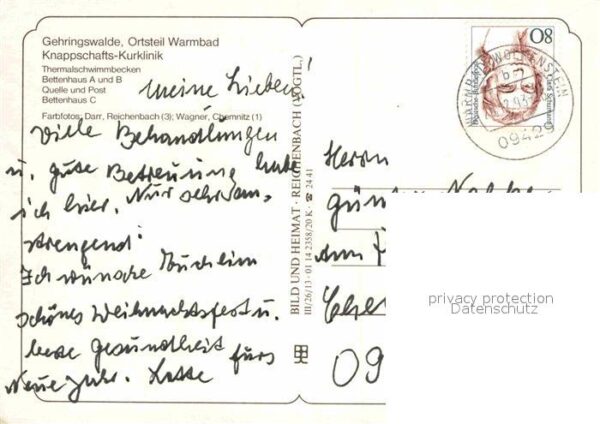 Gehringswalde, Ortsteil Warmbad
Knappschafts-Kurklinik
Thermalschwimmbecken
Bettenhaus A und B
Quelle und Post
Bettenhaus C
Farbfotos: Darr, Reichenbach (3); Wagner, Chemnitz (1)
Meine Lieben!
Viele Behandlungen
u. gute Betreuung habe
ich hier. Nur sehr an-
strengend!
Ich wünsche
schönes Weihnachtsfest u.
beste Gesundheit fürs
Neue Jahr.
BILD UND HEIMAT · REICHENBACH (VOGTL.)
III/26/13 · 01 14 2358/20 K · ☎ 24 41
80
Clara Schumann
Deutsche Bundespost
0942
Herrn
Am
09
privacy protection
Datenschutz